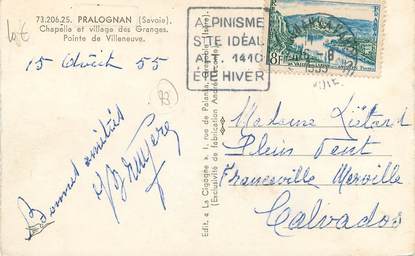 73.206.25. PRALOGNAN (Savoie).
Chapelle et village des Granges.
Pointe de Villeneuve.
15 Août 55
Bonnes amitiés
Bruyere
Edit. « La Cigogne », 1, rue de Palanka, Grenoble (Isère).
(Exclusivité de fabrication André Leconte)
ALPINISME
SITE IDÉAL
ALT. 1410
ÉTÉ HIVER
8F
Madame Liétard
Plein Vent
Franceville Merville
Calvados